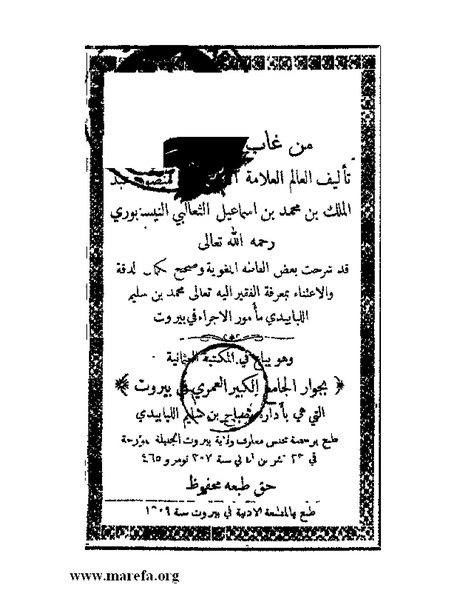 من غاب
تأليف العالم العلامة عبد
الملك بن محمد بن اسماعيل الثعالبي النيسابوري
رحمه الله تعالى
قد شرحت بعض الفاظه اللغوية وصححت بكمال الدقة
والاعتناء بمعرفة الفقير اليه تعالى محمد بن سليم
اللبابيدي مأمور الاجراء في بيروت
وهو يباع في المكتبة العثمانية
﴿ بجوار الجامع الكبير العمري في بيروت ﴾
التي هي بادارة مصباح بن سليم اللبابيدي
طبع برخصة مجلس معارف ولاية بيروت الجليلة مؤرخة
في ٢٣ تشرين ثاني سنة ٣٠٧ نومرو ٤٦٥
حق طبعه محفوظ
طبع بالمطبعة الادبية في بيروت سنة ١٣٠٩
www.marefa.org